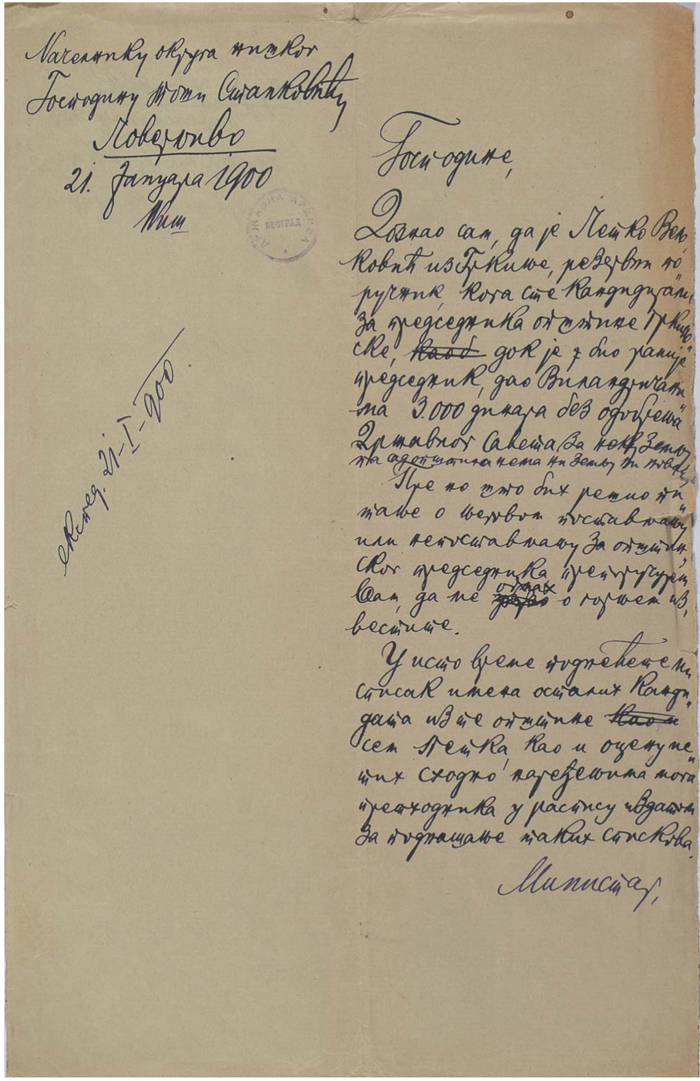 Начелнику округа нишког
Господину Тоши Станковићу
Поверљиво
21. Јануара 1900
Ниш
ДРЖАВНА АРХИВА
БЕОГРАД
експед. 21-I-900
Господине,
Дознао сам, да је Петко Вељ„
ковић из Гркиње, резервни по„
ручник, кога сте кандидовали
за председника општине Гркињ„
ске, док је био раније
председник, дао Виландричани„
ма 3.000 динара без одобрења
Државног Савета, за неку земљу
па општина нема ни земљу ни новац
Пре но што бих решио пи„
тање о његовом постављању
или непостављању за општин„
ског председника, препоручујем
Вам, да ме одмах о горњем из„
вестите.
У исто време поднећете ми
списак имена осталих канди„
дата из те општине
сем Петка, као и оцену ње„
них сходно наређењима мога
претходника у распису издатом
за подношање таких спискова.
Министар,